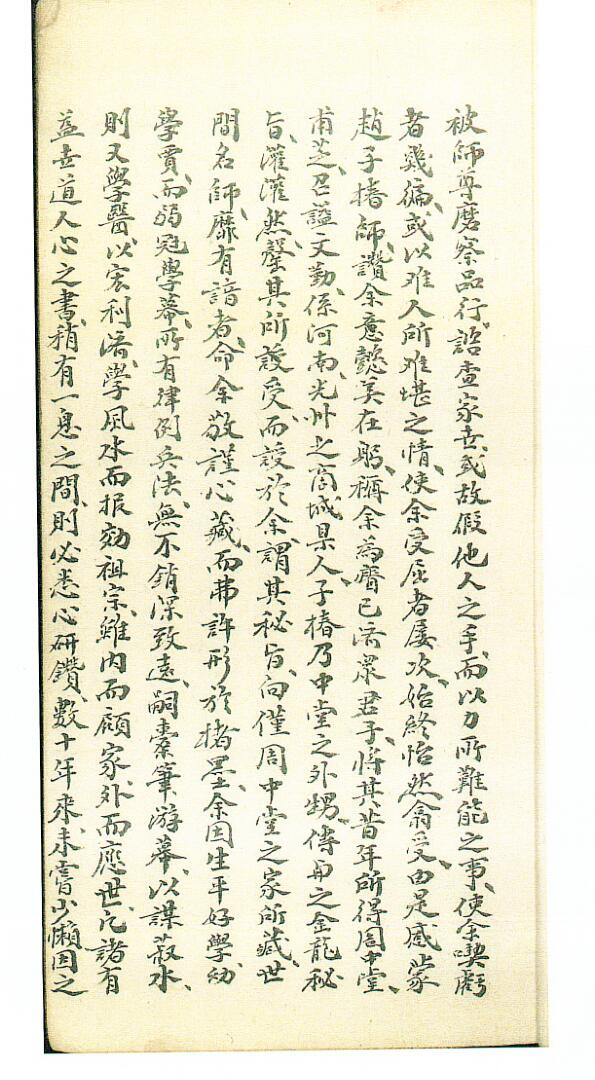 被師尊磨察品行、諮查家世、或故假他人之手、而以力所難能之事、使余喫虧
者幾徧、或以难人所难堪之情、使余受屈者屡次、始終怡然翕受、由是感蒙
趙子椿師、讚余意懿美在躬、稱余為磨己济眾君子、將其昔年所得周中堂、
甫芝、召謚文勤、係河南光州之商城県人、子椿乃中堂之外甥、傳舟之金龍秘
旨、灌灌然、罄其所護受而授於余、謂其秘旨、向僅周中堂之家所藏、世
間名師、靡有諳者、命余敬謹心藏、而弗許形於楮墨、余因生平好學、幼
學賈、而弱冠學幕、所有律例兵法、無不鈎深致遠、嗣槖筆游幕、以謀菽水、
則又學醫、以宏利済、學風水而报効祖宗、雖內而顧家、外而應世、凢諸有
益世道人心之書、稍有一息之間、則必悉心研鑽、數十年來、未嘗少懶、因之